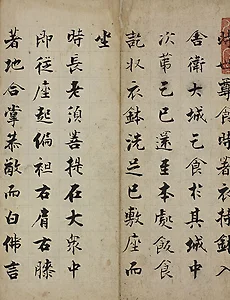 時世尊食時著衣持鉢入
舍衛大城乞食於其城中
次第乞已還至本處飯食
訖收衣鉢洗足已敷座而
坐
時長老須菩提在大衆中
即從座起偏袒右肩右膝
著地合掌恭敬而白佛言